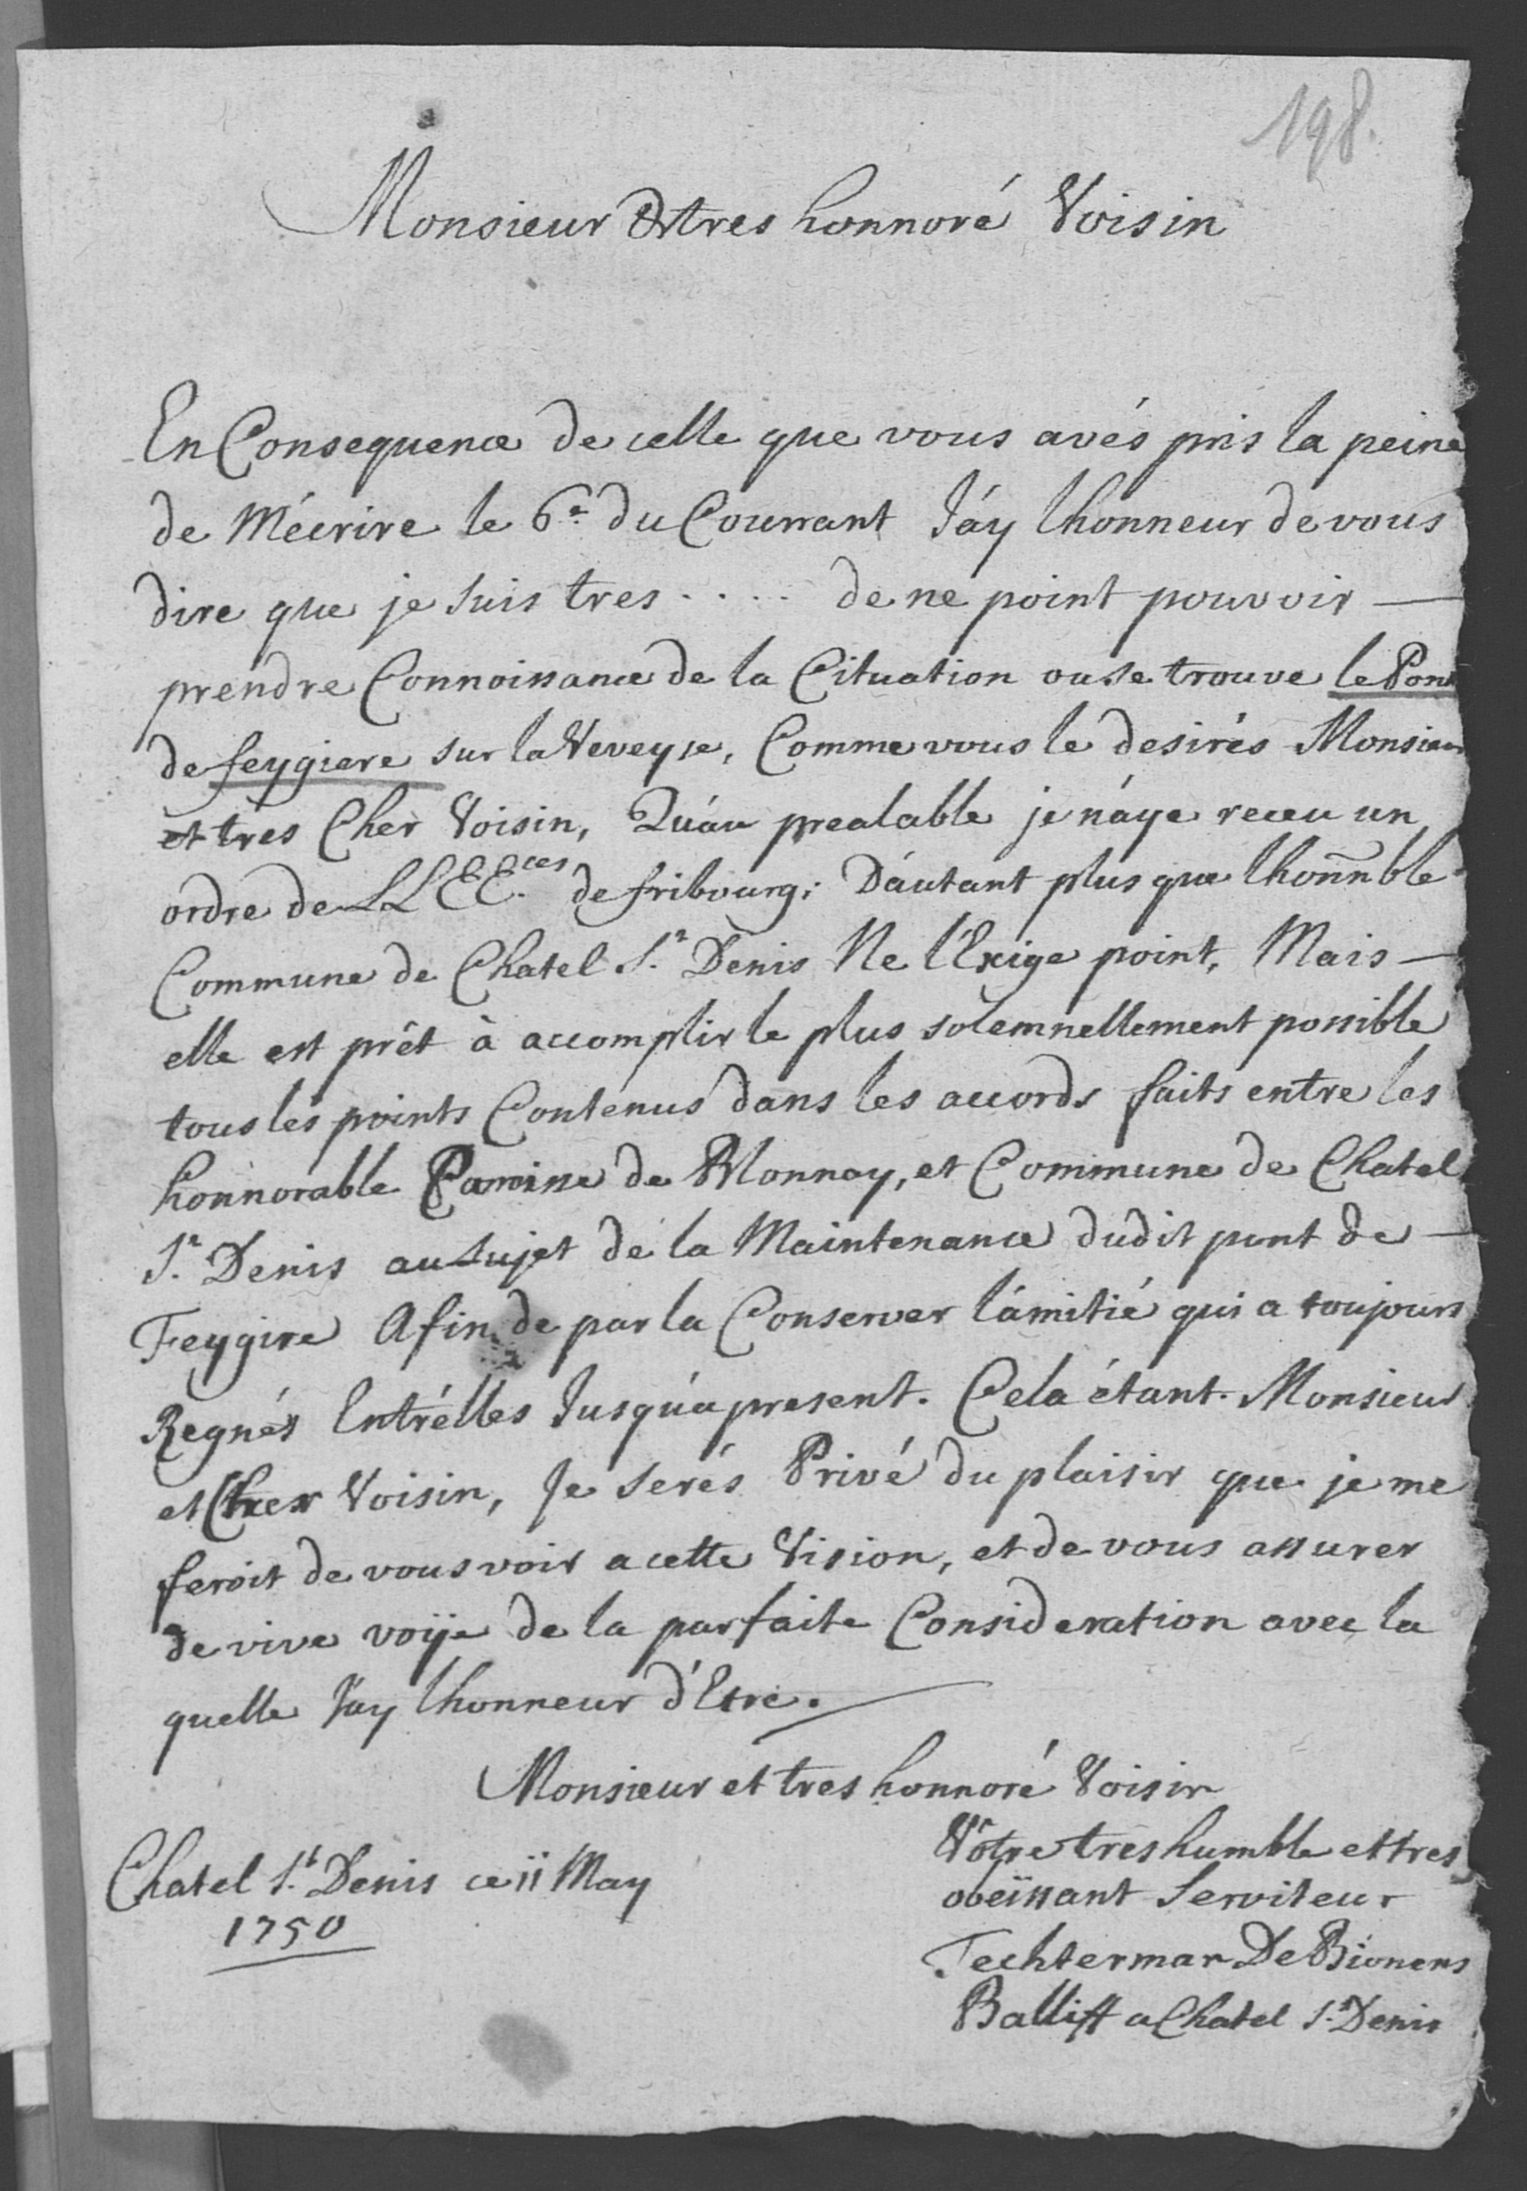 198.
Monsieur & tres honnoré Voisin
En Consequence de celle que vous avés pris la peine
de Mécrire le 6e. du Courrant J'áy lhonneur de vous
dire que je suis tres ..... de ne point pouvoir —
prendre Connoissance de la Cituation ou se trouve le Pont
de feygiere sur la Veveyse, Comme vous le desirés Monsieur
et tres Cher Voisin, Qu'áu prealable je n'áye receu un
ordre de LLEE.ces de fribourg; D'áutant plus que lhon̄nble
Commune de Chatel St. Denis Ne l'Exige point, Mais —
elle est prêt à accomplir le plus solemnellement possible
tous les points Contenus dans les accords faits entre les
honnorable Paroisse de Blonnay, et Commune de Chatel
St. Denis au sujet de la Maintenance dudit pont de —
Feygire Afin de par la Conserver l'ámitié qui a toujours
Regnés Entr'élles Jusqu'a present. Cela étant. Monsieur
et Cher Voisin, Je serés Privé du plaisir que je me
feroit de vous voir a cette Vision, et de vous assurer
de vive voije de la parfaite Consideration avec la
quelle J'ay lhonneur d'Etre.
Monsieur et tres honnoré Voisin
Vôtre tres humble et tres
obeïssant Serviteur
Techterman De Bionens
Balliff a Chatel St. Denis
Chatel St. Denis ce 11 May
1750